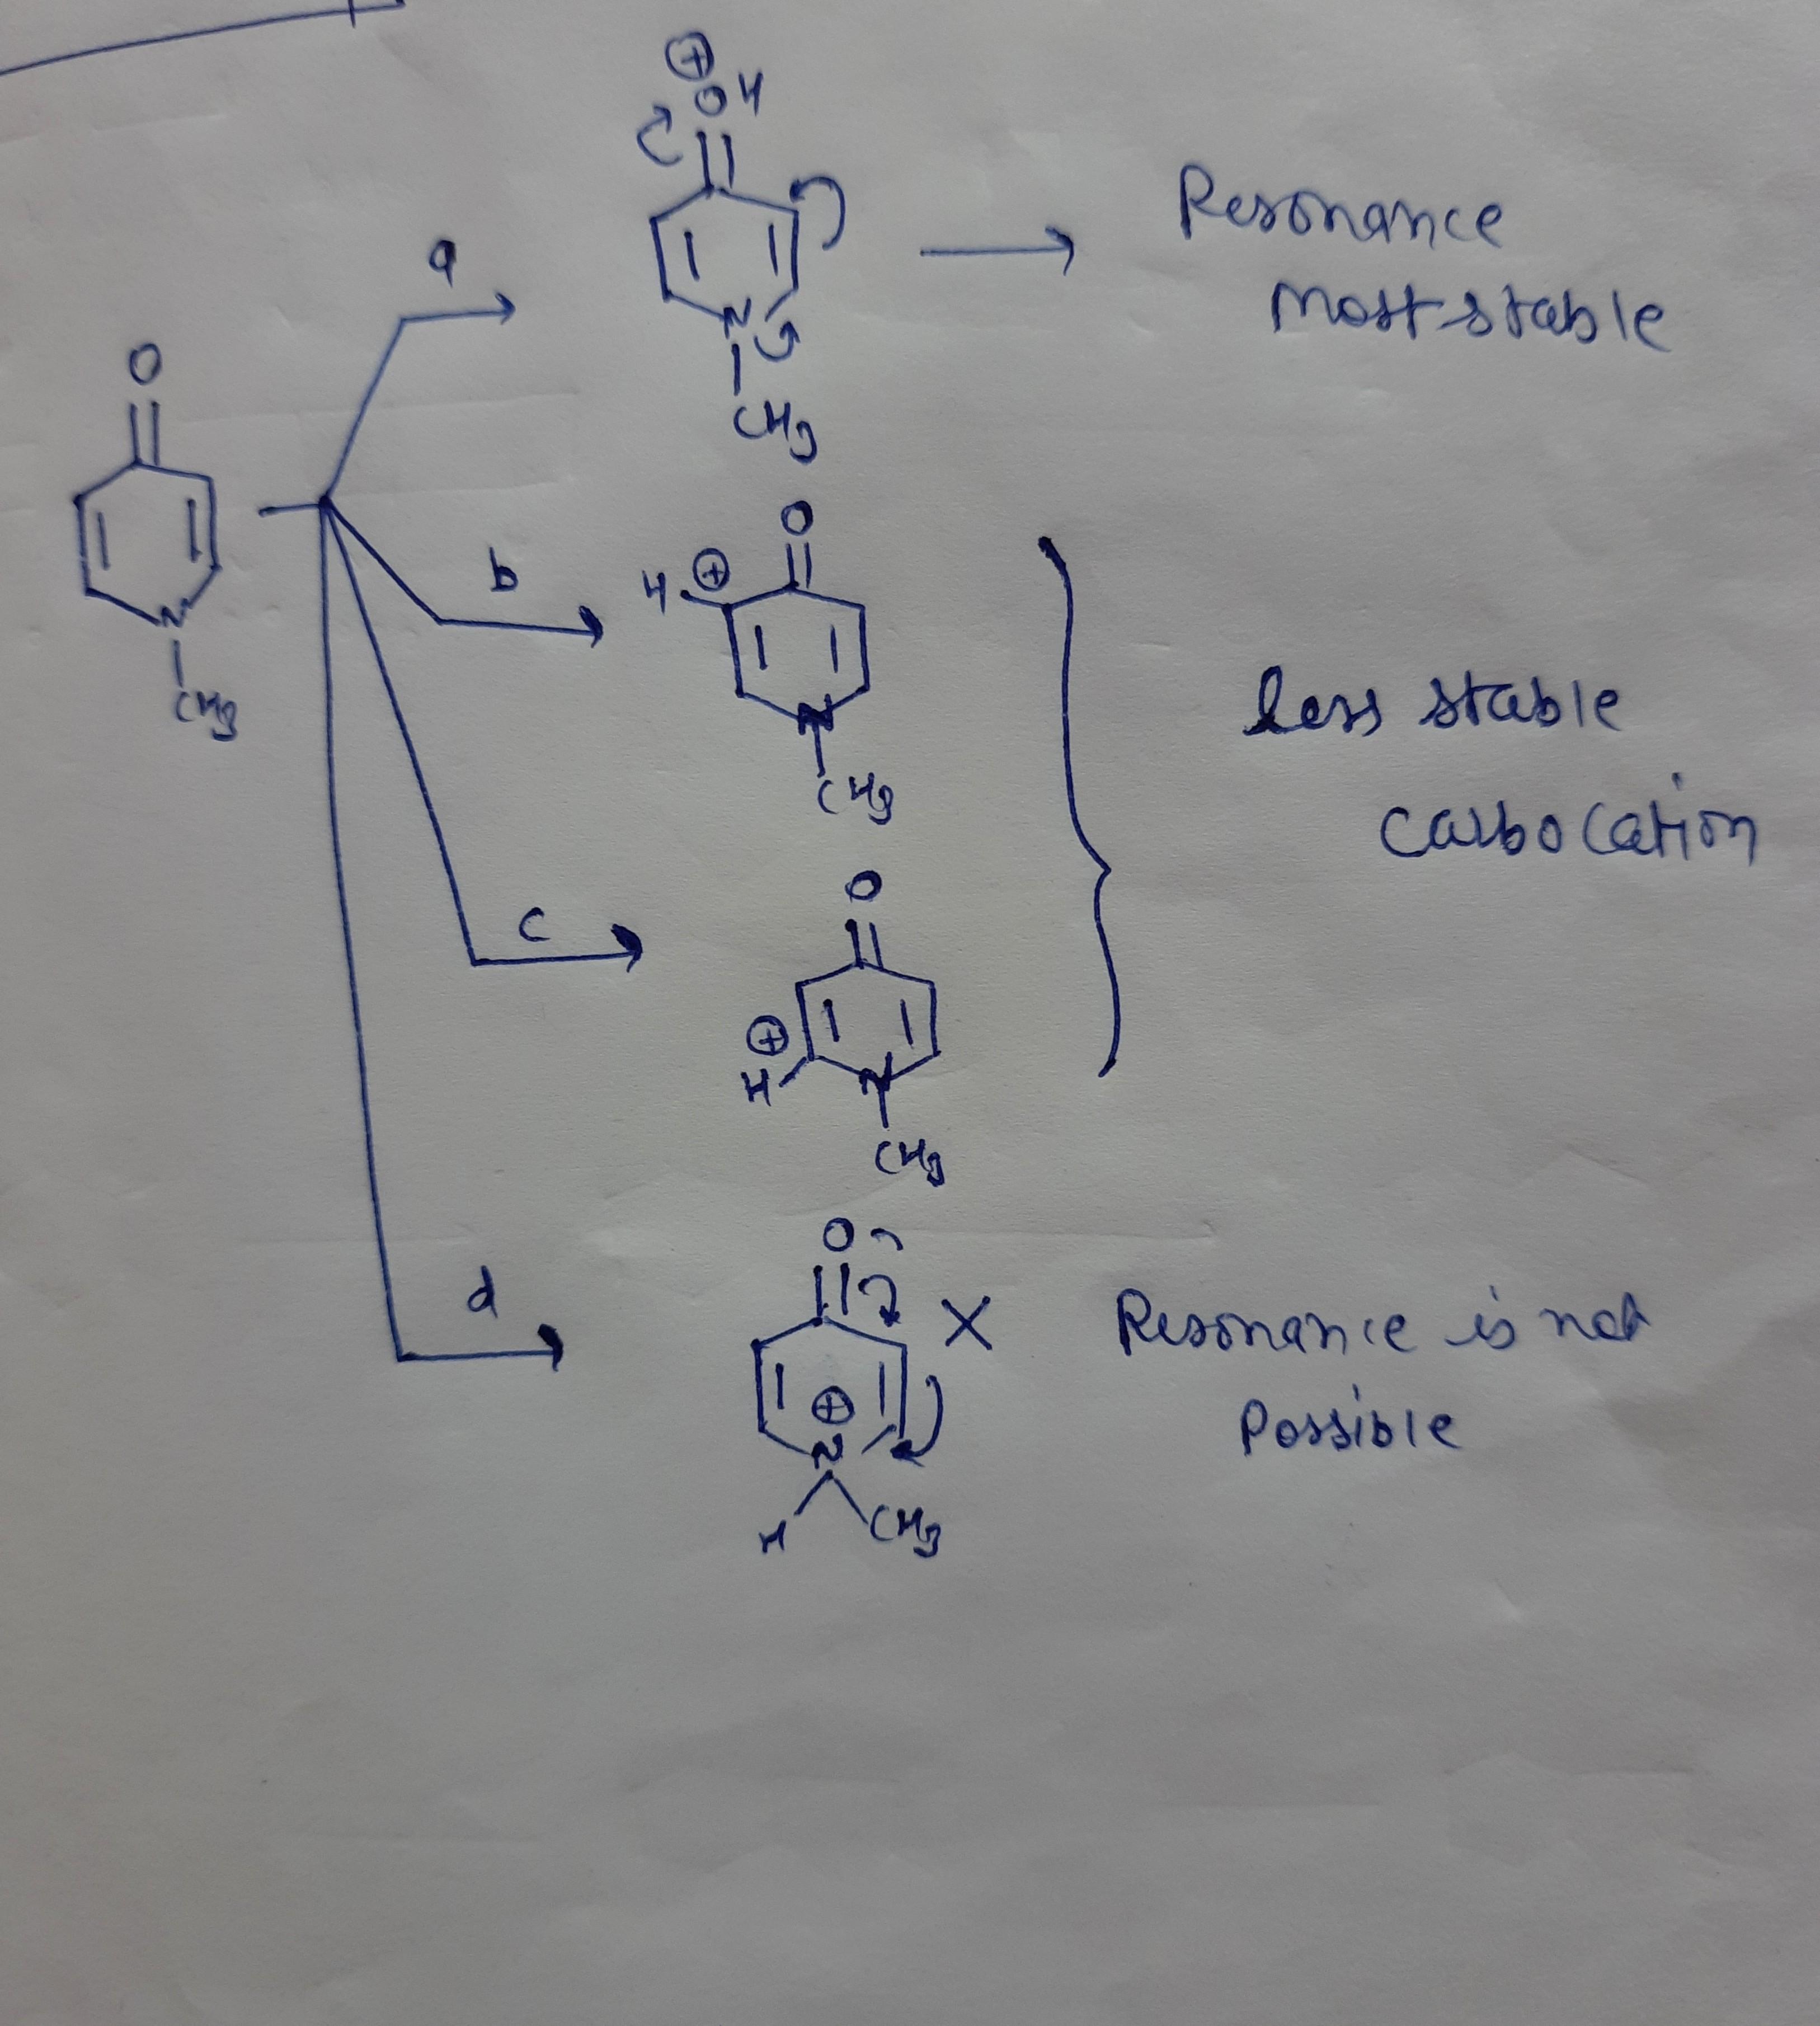 ⊕
OH
a
Resonance
most stable
N
CH3
O
N
CH3
b
O
H ⊕
N
CH3
less stable
carbocation
c
O
⊕
H
N
CH3
d
O
X
Resonance is not
Possible
⊕
N
H
CH3